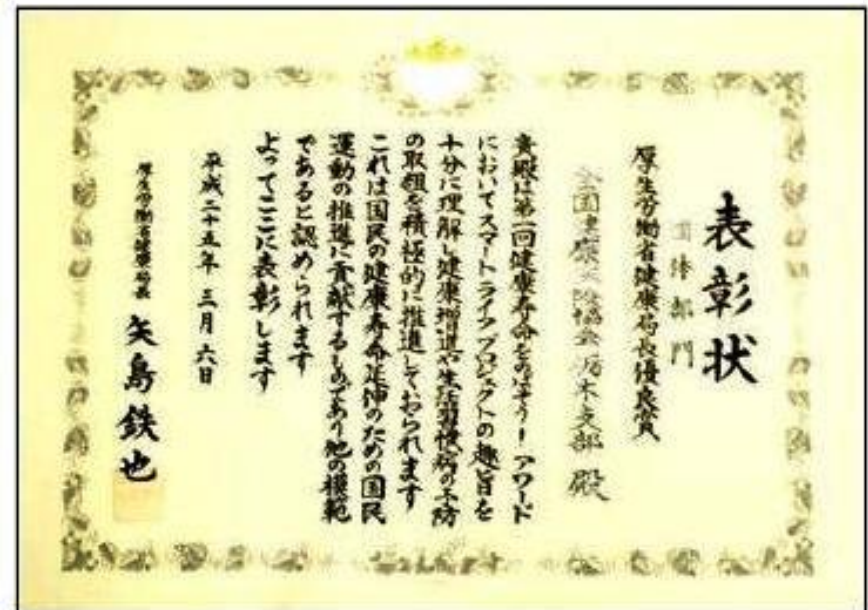 表彰状
団体部門
厚生労働省健康局長優良賞
全国健康保険協会 栃木支部 殿
貴殿は第一回健康寿命をのばそう！アワード
においてスマートライフプロジェクトの趣旨を
十分に理解し健康増進や生活習慣病の予防
の取組を積極的に推進しておられます
これは国民の健康寿命延伸のための国民
運動の推進に貢献するものであり他の模範
であると認められます
よってここに表彰します
平成二十五年 三月 六日
厚生労働省健康局長 矢島鉄也